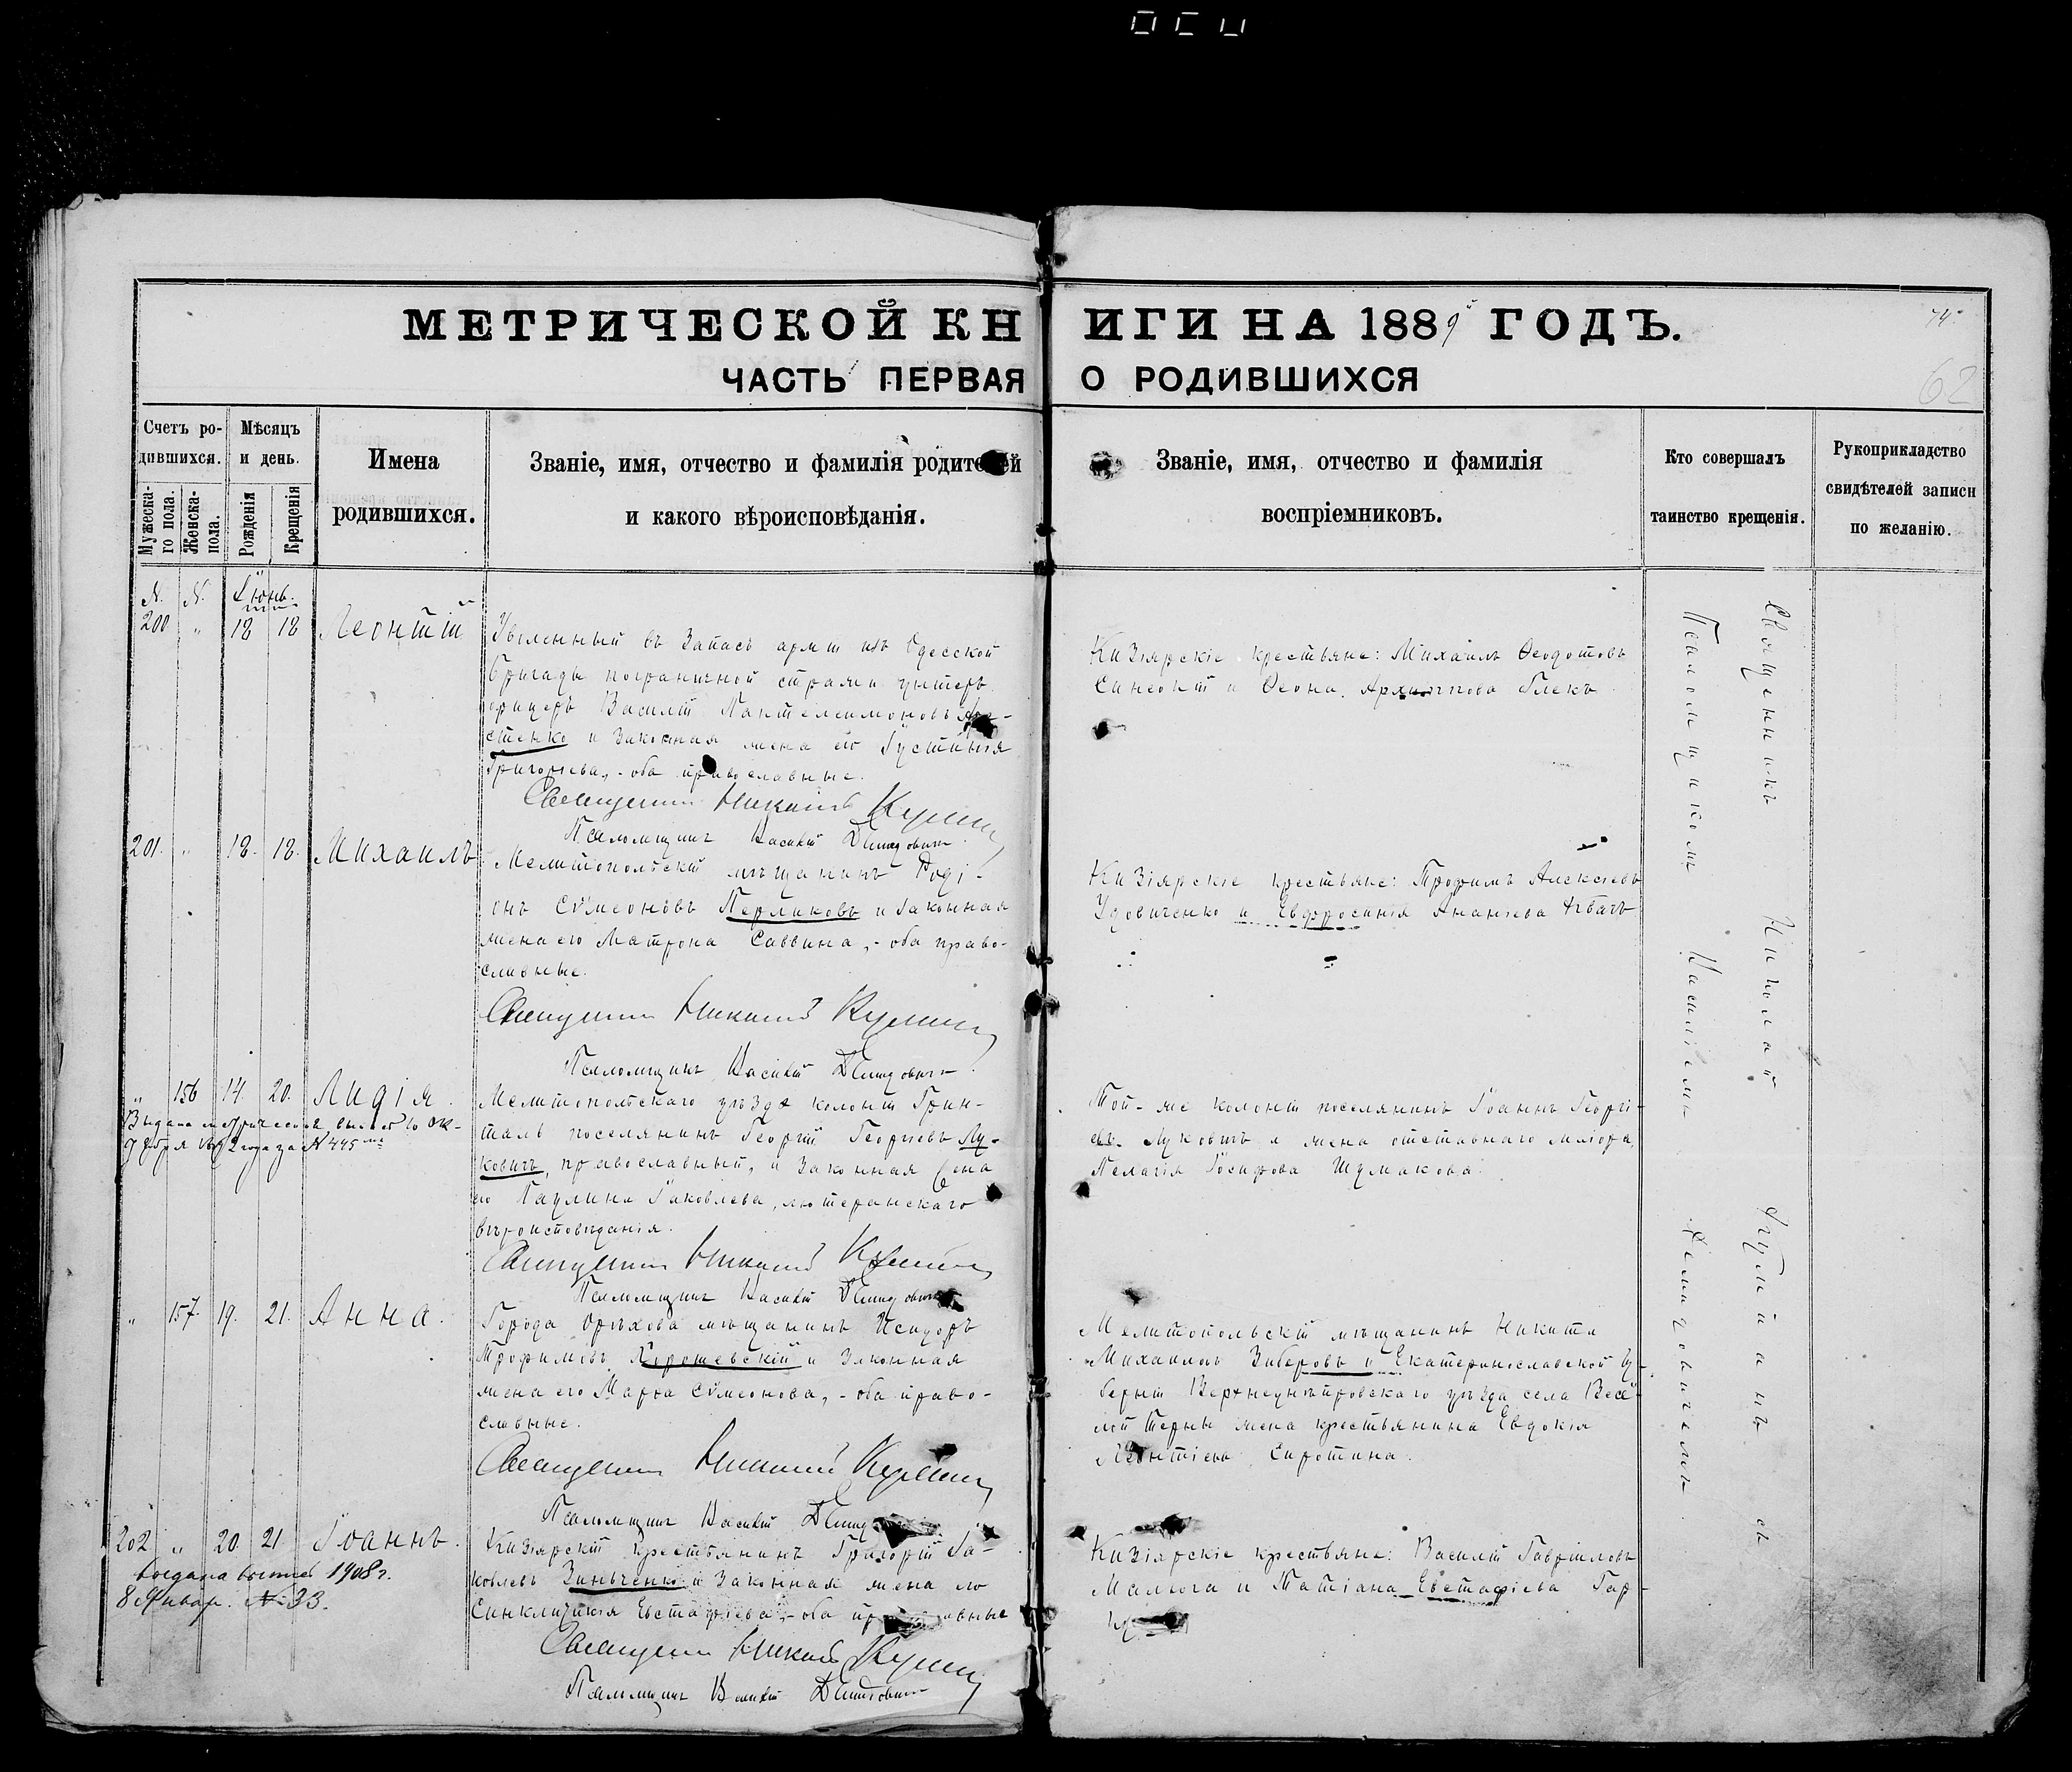 МЕТРИЧЕСКОЙ КНИГИ НА 1889й ГОДЪ.
74.
62
ЧАСТЬ ПЕРВАЯ О РОДИВШИХСЯ
Счетъ родившихся.
Мужеска-го пола.
Женска- пола.
Мѣсяцъ и день.
Рожденія
Крещенія
Имена родившихся.
Званіе, имя, отчество и фамилія родителей
и какого вѣроисповѣданія.
Званіе, имя, отчество и фамилія
воспріемниковъ.
Кто совершалъ
таинство крещенія.
Рукоприкладство
свидѣтелей записи
по желанію.
N. N. Іюнь.
200 " 18 18 Леонтій
Уволенный въ запасъ арміи изъ Одесской
бригады пограничной стражи унтеръ
офицеръ Василій Пантелеимоновъ
стенко и законная жена его Іустинія
Григоріева, - оба православные.
Священникъ Николай
Псаломщикъ Василій Демидовичъ
Кизіярскіе крестьяне: Михаилъ Ѳеодотовъ
и Ѳеона Архиппова
201. " 18. 18. Михаилъ
Мелитопольскій мѣщанинъ Роді-
онъ Сѵмеоновъ Перликовъ и законная
жена его Матрона Саввина, - оба право-
славные.
Священникъ Николай
Псаломщикъ Василій Демидовичъ
Кизіярскіе крестьяне: Трофимъ Алексіевъ
Удовиченко и Евфросинія Ананіева
" 156 14. 20. Лидія.
Выдана метрическая выпись
1902 года за N 445
Мелитопольскаго уѣзда колоніи Грин-
таль поселянинъ Георгій Георгіевъ Лу-
ковичъ, православный, и законная жена
его Паулина Іаковлева, лютеранскаго
вѣроисповѣданія.
Священникъ Николай
Псаломщикъ Василій Демидовичъ
Той-же колоніи поселянинъ Іоаннъ Георгі-
евъ Луковичъ и жена отставного маіора,
Пелагія Іосифова Шумакова.
" 157. 19. 21. Анна.
Города Орѣхова мѣщанинъ Исидоръ
Трофимовъ Хорошевскій и законная
жена его Марѳа Сѵмеонова, - оба право-
славные.
Священникъ Николай
Псаломщикъ Василій
Мелитопольскій мѣщанинъ Никита
Михаиловъ Зиберовъ и Екатеринославской гу-
берніи Верхнеднѣпровскаго уѣзда села Весе-
лой Терны жена крестьянина Евдокія
Леонтіева Сиротина.
202 " 20. 21. Іоаннъ.
выдана 1908 г.
8 Январ. N 33.
Кизіярскій крестьянинъ Григорій Іа-
ковлевъ Зинченко и законная жена его
Синклитикія Евстафіева, - оба православные
Священникъ Николай
Псаломщикъ Василій Демидовичъ
Кизіярскіе крестьяне: Василій Гавріиловъ
и Татіана Евстафіева
Священникъ Николай съ
Псаломщикомъ Василіемъ Демидовичемъ